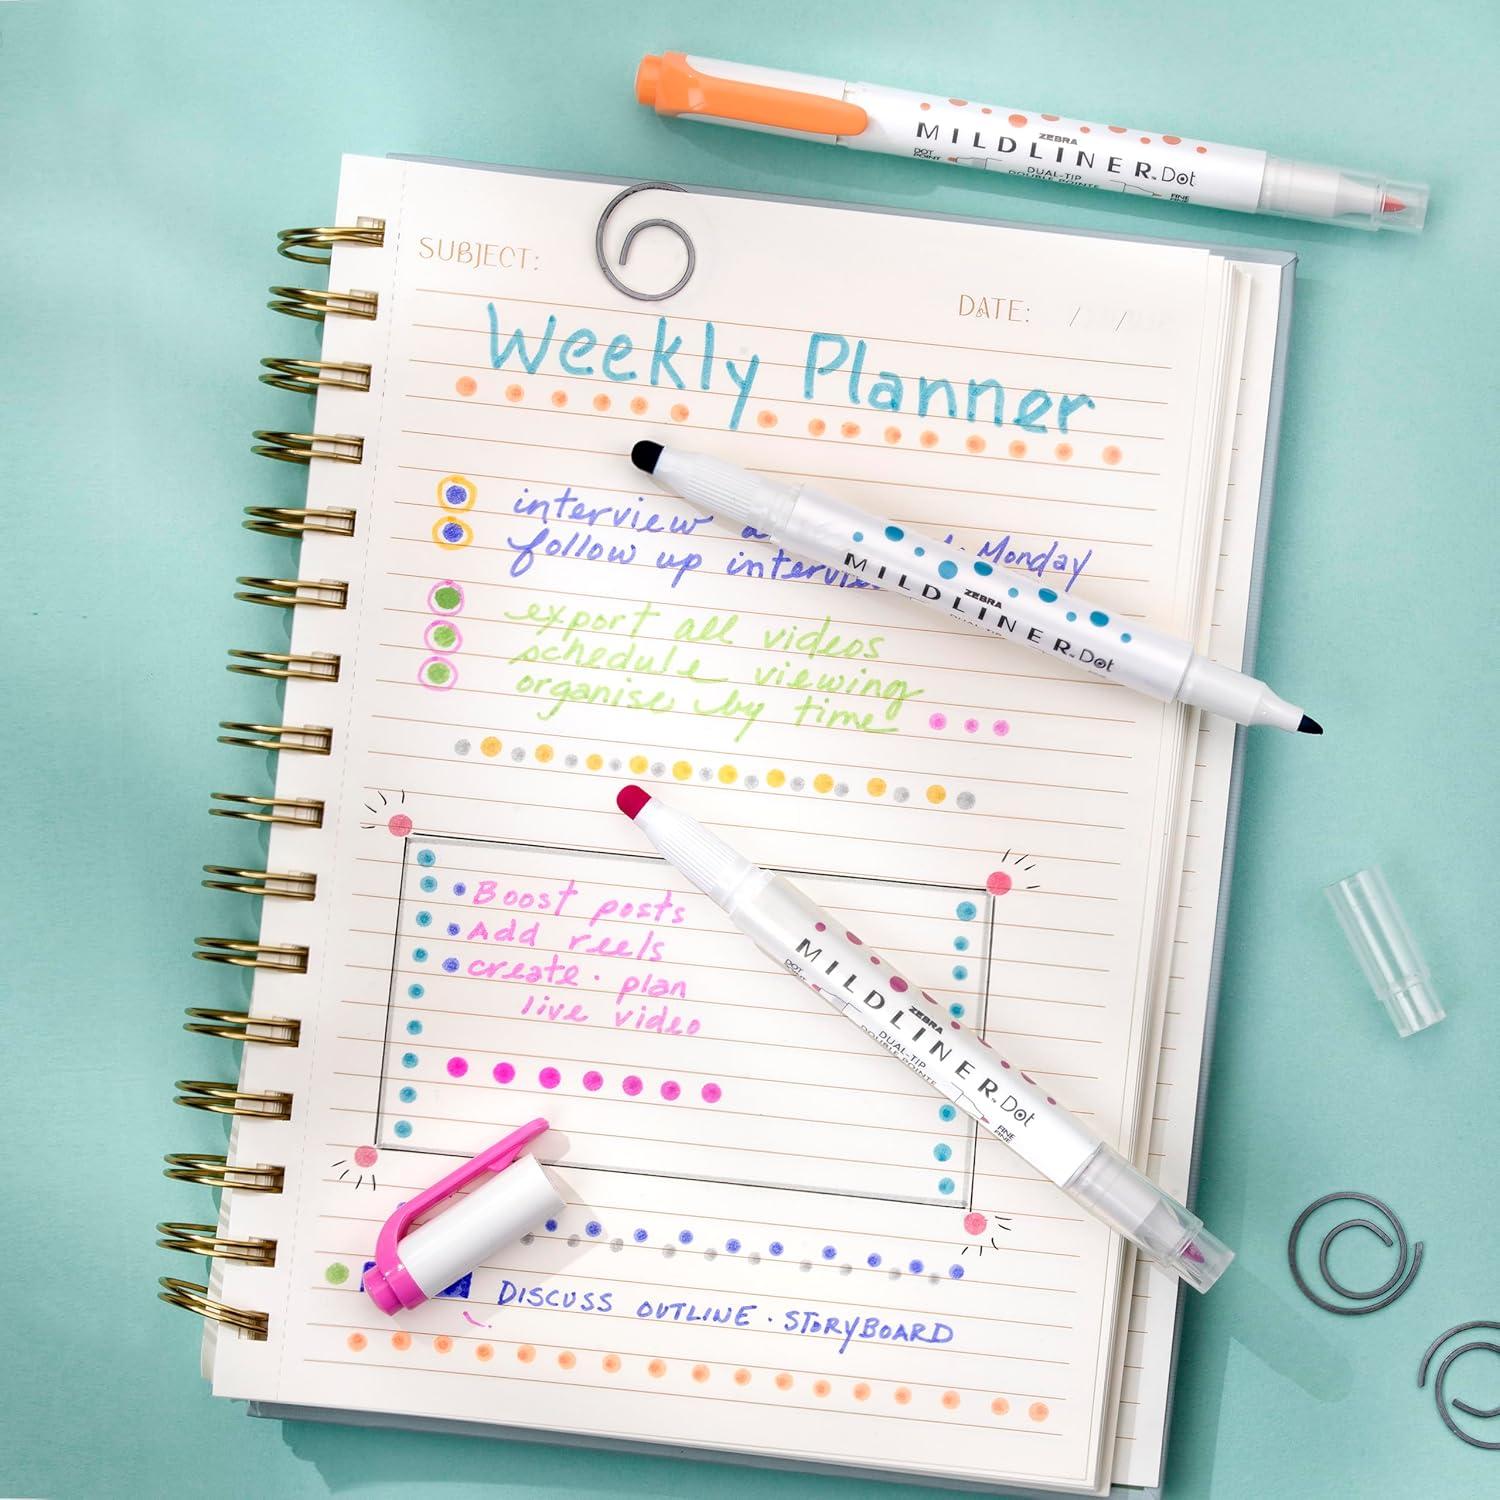 ZEBRA
MILDLINER™ Dot
DOT
POINT
DUAL-TIP
DOUBLE POINTE
FINE
FINE
SUBJECT:
DATE: / /
Weekly Planner
interview Monday
follow up
export all videos
schedule viewing
organise by time
ZEBRA
MILDLINER™ Dot
DUAL-TIP
• Boost posts
• Add reels
• create · plan
live video
ZEBRA
MILDLINER™ Dot
DOT
POINT
DUAL-TIP
DOUBLE POINTE
FINE
FINE
DISCUSS OUTLINE · STORYBOARD